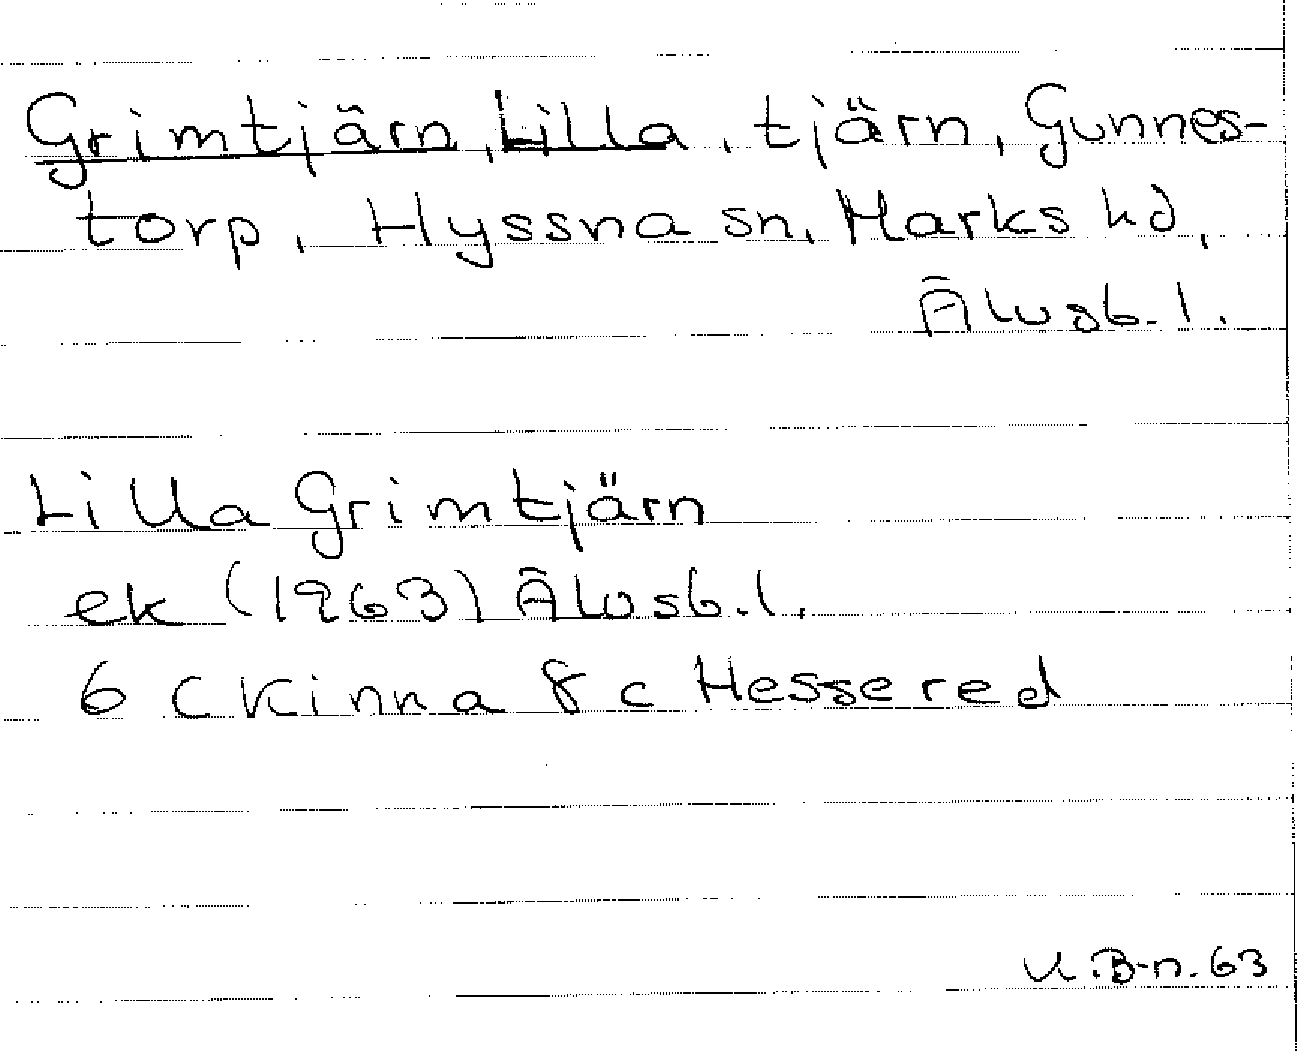 Grimtjärn, Lilla, tjärn, Gunnes-
torp, Hyssna sn, Marks hd,
Älvsb. l.
Lilla Grimtjärn
ek (1963) Älvsb. l.
6 C Kinna 8 c Hessered
U.B-n. 63